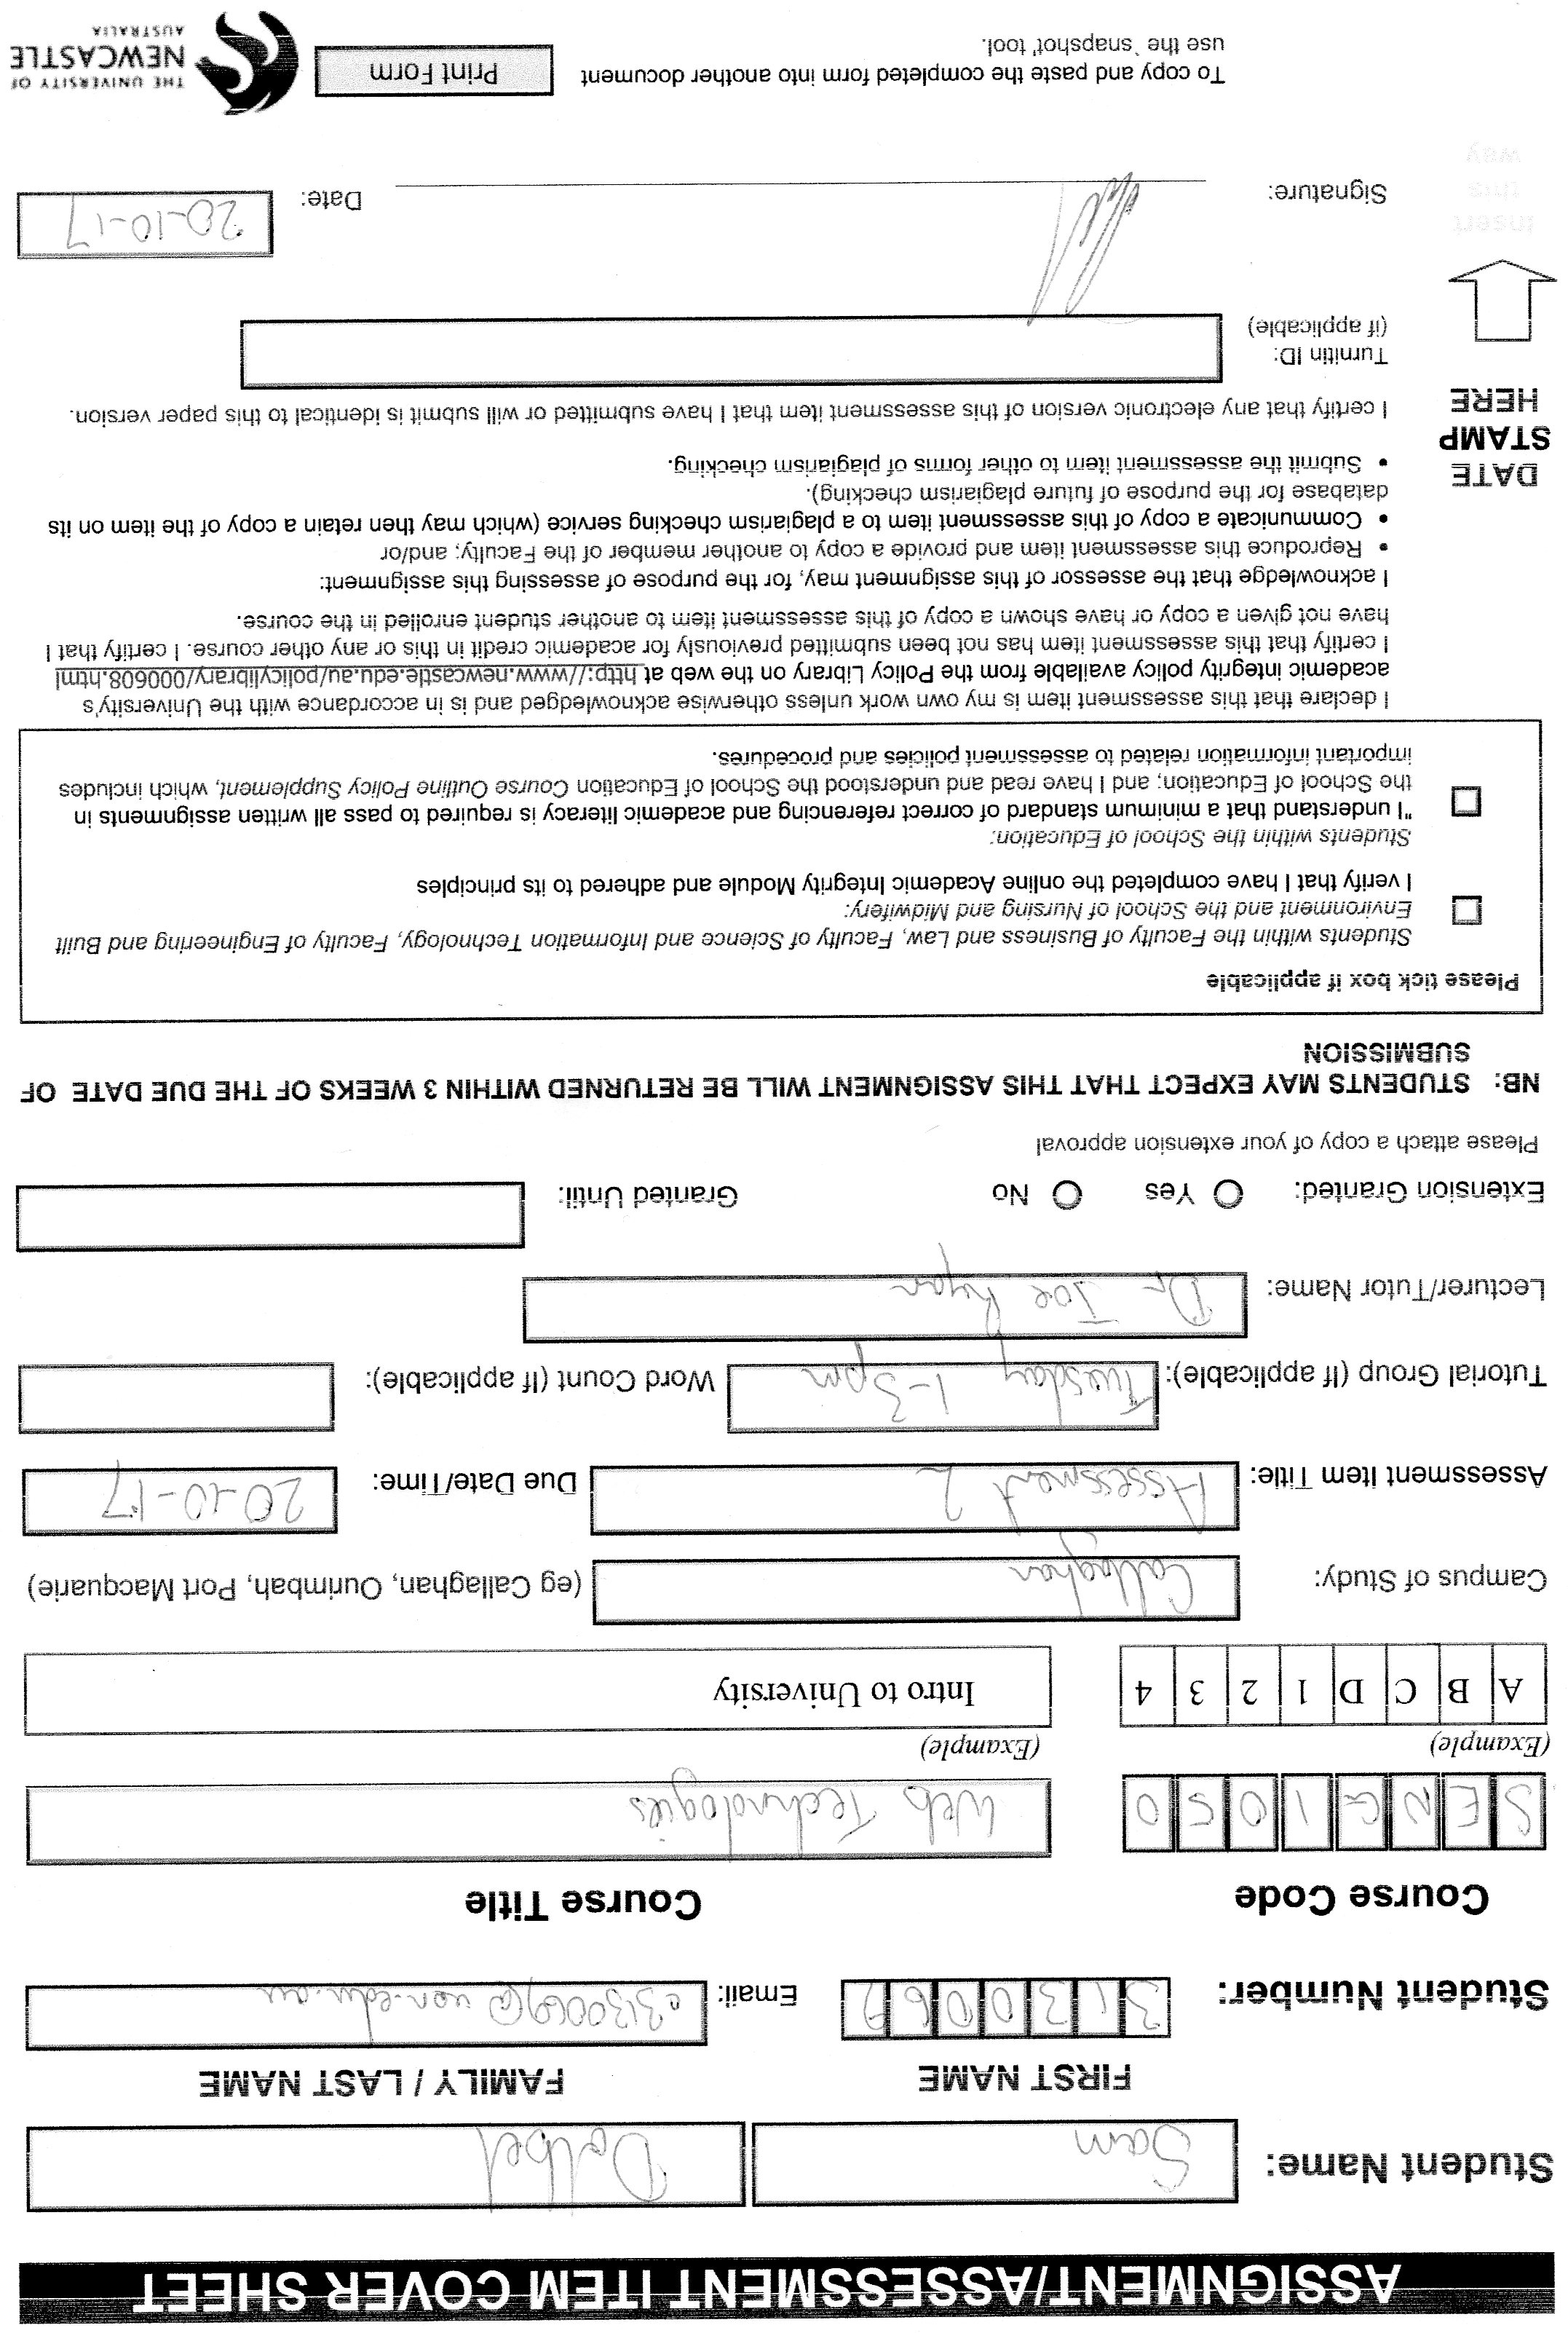 ASSIGNMENT/ASSESSMENT ITEM COVER SHEET
Student Name: Sam Dolbel
FIRST NAME FAMILY / LAST NAME
Student Number: 3130069 Email: c3130069@uon.edu.au
Course Code Course Title
SENG1050 Web Technologies
(Example) (Example)
A B C D 1 2 3 4 Intro to University
Campus of Study: Callaghan (eg Callaghan, Ourimbah, Port Macquarie)
Assessment Item Title: Assessment 2 Due Date/Time: 20-10-17
Tutorial Group (If applicable): Tuesday 1-3pm Word Count (If applicable):
Lecturer/Tutor Name: Dr Joe Ryan
Extension Granted: Yes No Granted Until:
Please attach a copy of your extension approval
NB: STUDENTS MAY EXPECT THAT THIS ASSIGNMENT WILL BE RETURNED WITHIN 3 WEEKS OF THE DUE DATE OF
SUBMISSION
Please tick box if applicable
Students within the Faculty of Business and Law, Faculty of Science and Information Technology, Faculty of Engineering and Built
Environment and the School of Nursing and Midwifery:
I verify that I have completed the online Academic Integrity Module and adhered to its principles
Students within the School of Education:
"I understand that a minimum standard of correct referencing and academic literacy is required to pass all written assignments in
the School of Education; and I have read and understood the School of Education Course Outline Policy Supplement, which includes
important information related to assessment policies and procedures.
I declare that this assessment item is my own work unless otherwise acknowledged and is in accordance with the University's
academic integrity policy available from the Policy Library on the web at http://www.newcastle.edu.au/policylibrary/000608.html
I certify that this assessment item has not been submitted previously for academic credit in this or any other course. I certify that I
have not given a copy or have shown a copy of this assessment item to another student enrolled in the course.
I acknowledge that the assessor of this assignment may, for the purpose of assessing this assignment:
• Reproduce this assessment item and provide a copy to another member of the Faculty; and/or
• Communicate a copy of this assessment item to a plagiarism checking service (which may then retain a copy of the item on its
database for the purpose of future plagiarism checking).
• Submit the assessment item to other forms of plagiarism checking.
DATE
STAMP
HERE
I certify that any electronic version of this assessment item that I have submitted or will submit is identical to this paper version.
Turnitin ID:
(if applicable)
Insert
this
way
Signature: Date: 20-10-17
To copy and paste the completed form into another document
use the `snapshot' tool.
Print Form
THE UNIVERSITY OF
NEWCASTLE
AUSTRALIA